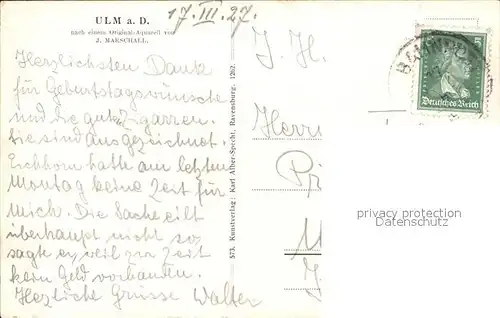 ULM a. D.
nach einem Original-Aquarell von
J. MAESCHALL.
17. III. 27.
Herzlichsten Dank
für Geburtstagswünsche
und die guten Zigarren.
Sie sind ausgezeichnet.
Eichhorn hatte am letzten
Montag keine Zeit für
mich. Die Sache eilt
überhaupt nicht so,
sagte er, weil zur Zeit
kein Geld vorhanden.
Herzliche Grüsse Walter
573. Kunstverlag: Karl Alber-Specht, Ravensburg. 1262.
J. H.
Herrn
BAHNPO
5
Deutsches Reich
privacy protection
watermark